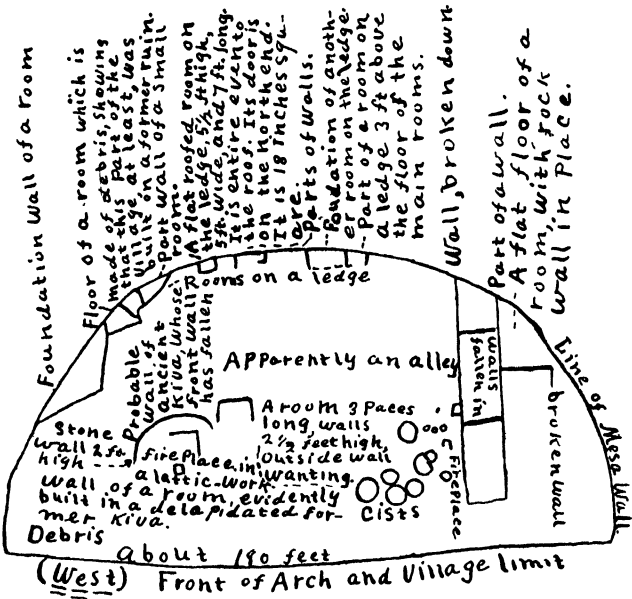 Foundation Wall of a room
Floor of a room which is
made of debris, showing
that this part of the
village, at least, was
built on a former ruin.
Part Wall of a small
room.
A flat roofed room on
the ledge, 5½ ft high,
5 ft. Wide and 7 ft. long.
It is entire even to
the roof. Its door is
on the north end.
It is 18 inches squ-
are.
Parts of Walls.
Foudation of anoth-
er room on the ledge.
Part of a room on
a ledge 3 ft above
the floor of the
main rooms.
Wall, broken down
Part of a wall.
A flat floor of a
room, with rock
wall in Place.
Rooms on a ledge
Probable
wall of
ancient
Kiva, whose
front wall
has fallen
Apparently an alley
walls
fallen in
Line of Mesa Wall.
broken wall
A room 3 Paces
long, walls
2½ feet high,
Outside wall
wanting.
Stone
wall 2 ft.
high
fire Place, in
a lattic-work
wall of a room, evidently
built in a delapidated for-
mer Kiva.
Fireplace
Cists
Debris
about 190 feet
(West) Front of Arch and Village limit